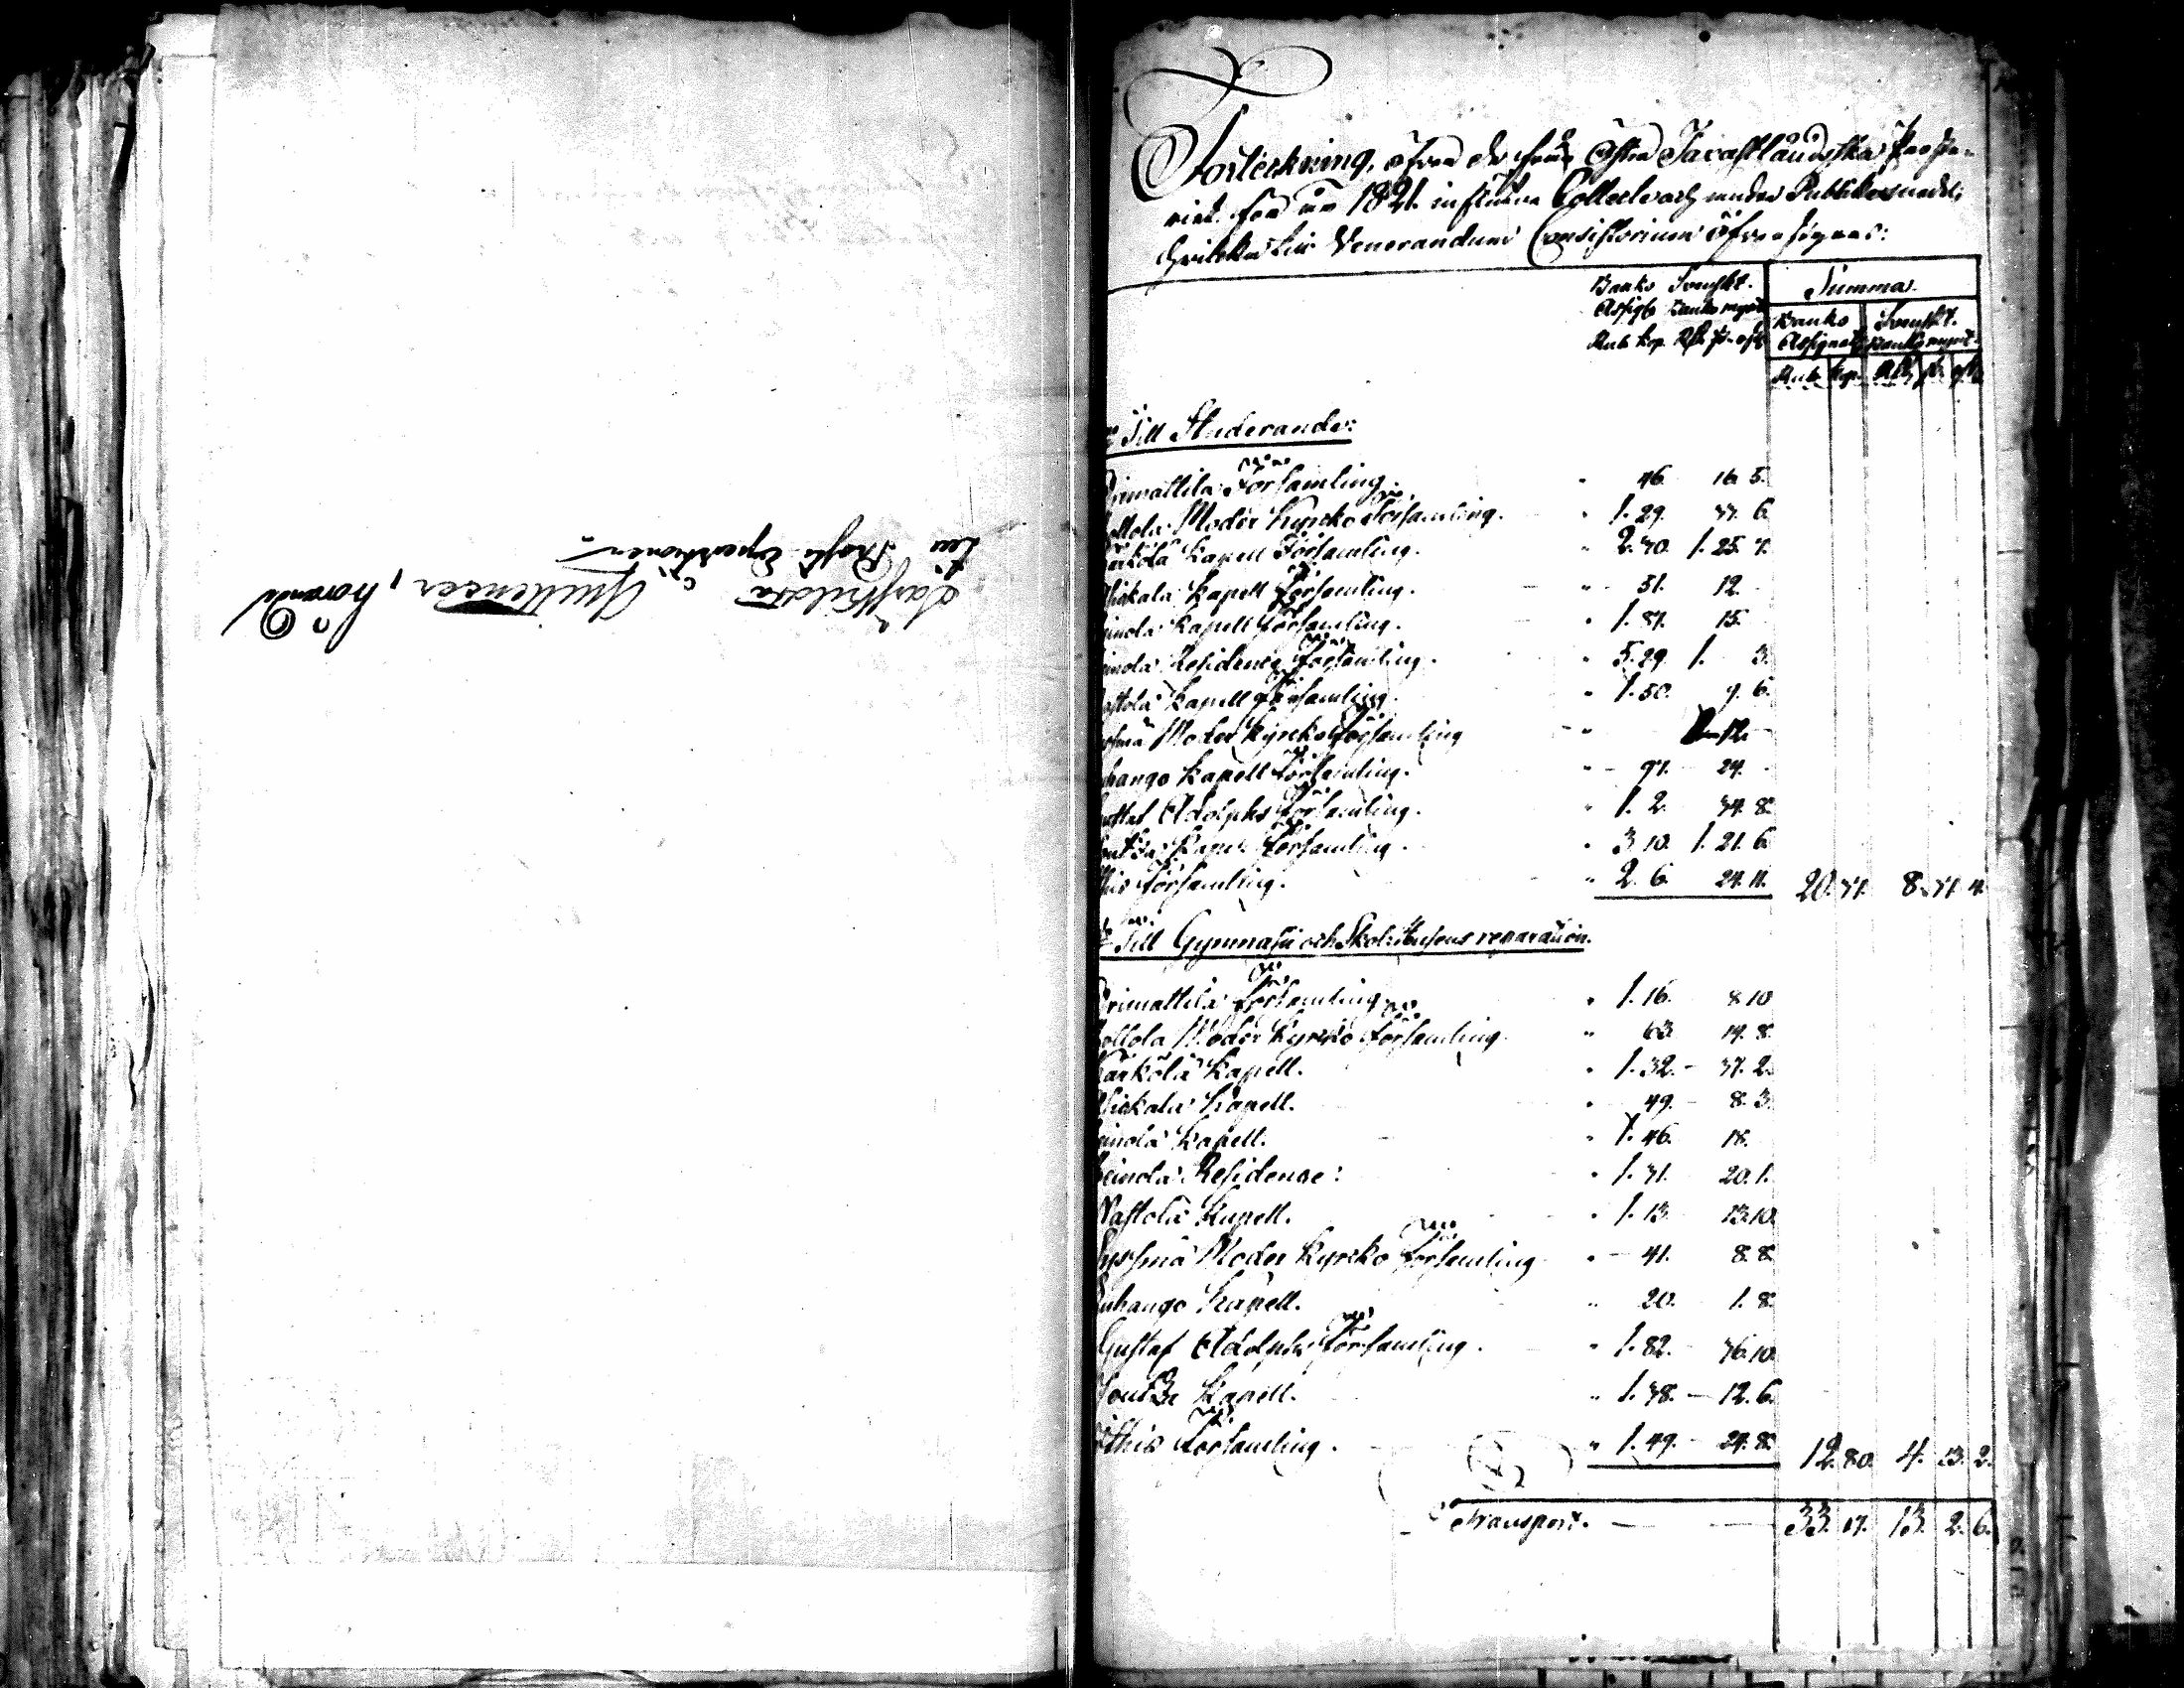 Särskilda Quittencer, hörande
till Prosts Expeditionen
Förteckning, öfver de från Östra Tavastländska Proste-
riet för år 1821 influtna Collect och andra Publika medel,
hvilka till Venerandum Consistorium öfversändas:
Banko Svenskt. Summa.
Assign. Banko mynt Banko Svenskt.
Rub. kop. Rdr s. rst. Assignat. Banko mynt.
Rub. kop. Rdr s. rst.
Till Studerande:
Orimattila Församling. " 46. 16. 5.
Hollola Moder Kyrko Församling. " 1. 29. 37. 6.
Kärkölä Kapell Församling. " 2. 70. 1. 25. 7.
Asikala Kapell Församling. " 31. 12.
Heinola Kapell Församling. " 1. 87. 15.
Heinola Residence Församling. " 5. 29. 1. 3.
Nastola Kapell Församling. " 1. 50. 9. 6.
Sysmä Moder Kyrko Församling " 12.
Luhango Kapell Församling. " 97. 24.
Gustaf Adolphs Församling. " 1. 2. 34. 8.
Kapell Församling. " 3. 10. 1. 21. 6.
Ithis Församling. " 2. 6. 24. 11. 20. 37. 8. 37. 4.
Till Gymnasii och Skolæ Husens reparation.
Orimattila Församling " 1. 16. 8. 10.
Hollola Moder Kyrko Församling. " 63. 14. 8.
Kärkölä Kapell. " 1. 32. 37. 2.
Asikala Kapell. " 49. 8. 3.
Heinola Kapell. " 1. 46. 18.
Heinola Residence: " 1. 31. 20. 1.
Nastola Kapell. " 1. 13. 13. 10.
Sysmä Moder Kyrko Församling " 41. 8. 8.
Luhango Kapell. " 20. 1. 8.
Gustaf Adolphs Församling. " 1. 82. 36. 10.
Kapell. " 1. 38. 12. 6.
Ithis Församling. " 1. 49. 24. 8. 12. 80. 4. 13. 2.
Transport. 33. 17. 13. 2. 6.